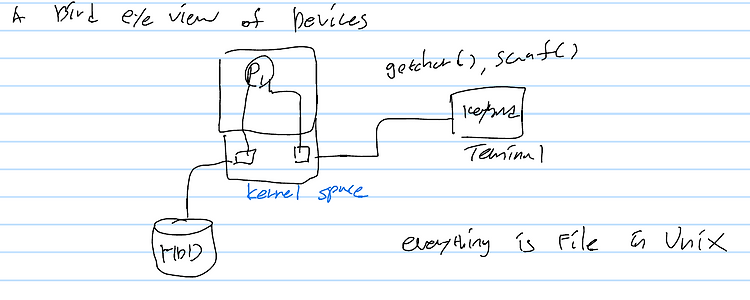 A Bird eye view of Devices
getchar(), scanf()
P1
keyboard
Terminal
kernel space
HDD
everything is File in Unix